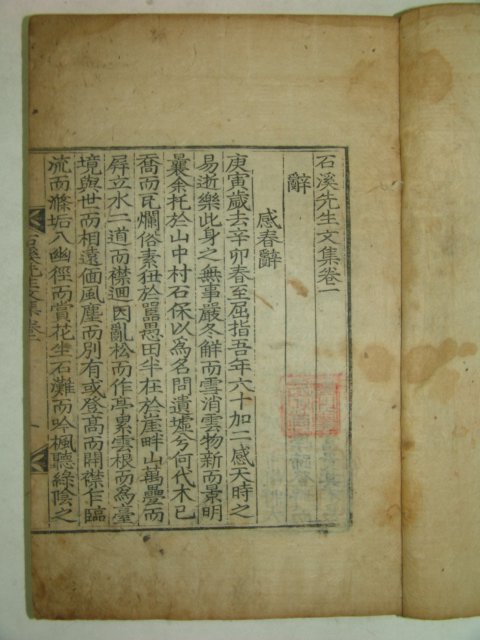 石溪先生文集卷一
辭
感春辭
庚寅歲去辛卯春至屈指吾年六十加二感天時之
易逝樂此身之無事嚴冬解而雪消雲物新而景明
曩余托於山中村石保以為名問遺墟兮何代木已
喬而瓦爛俗素狃於嚚愚田半在於崖畔山萬疊而
屛立水二道而襟迴因亂松而作亭累雲根而為臺
境與世而相遠偭風塵而別有或登高而開襟作臨
流而滌垢入幽徑而賞花坐石灘而吟楓聽綠陰之
石溪先生文集卷一